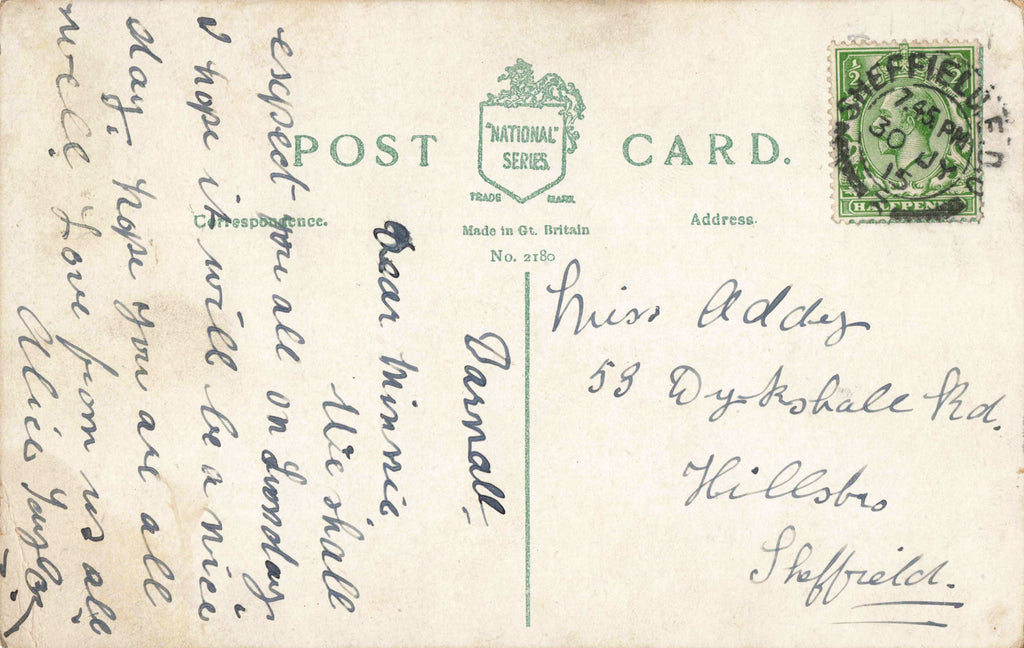 POST CARD.
"NATIONAL"
SERIES
TRADE MARK
Correspondence.
Made in Gt. Britain
No. 2180
Address.
½
HALFPENNY
SHEFFIELD
7.45 PM
30
15
Darnall
Dear Minnie
We shall
expect you all on Sunday
I hope it will be a nice
day, hope you are all
well Love from us all
Alice Taylor
Miss Addy
53 Dykshall Rd.
Hillsbro
Sheffield.